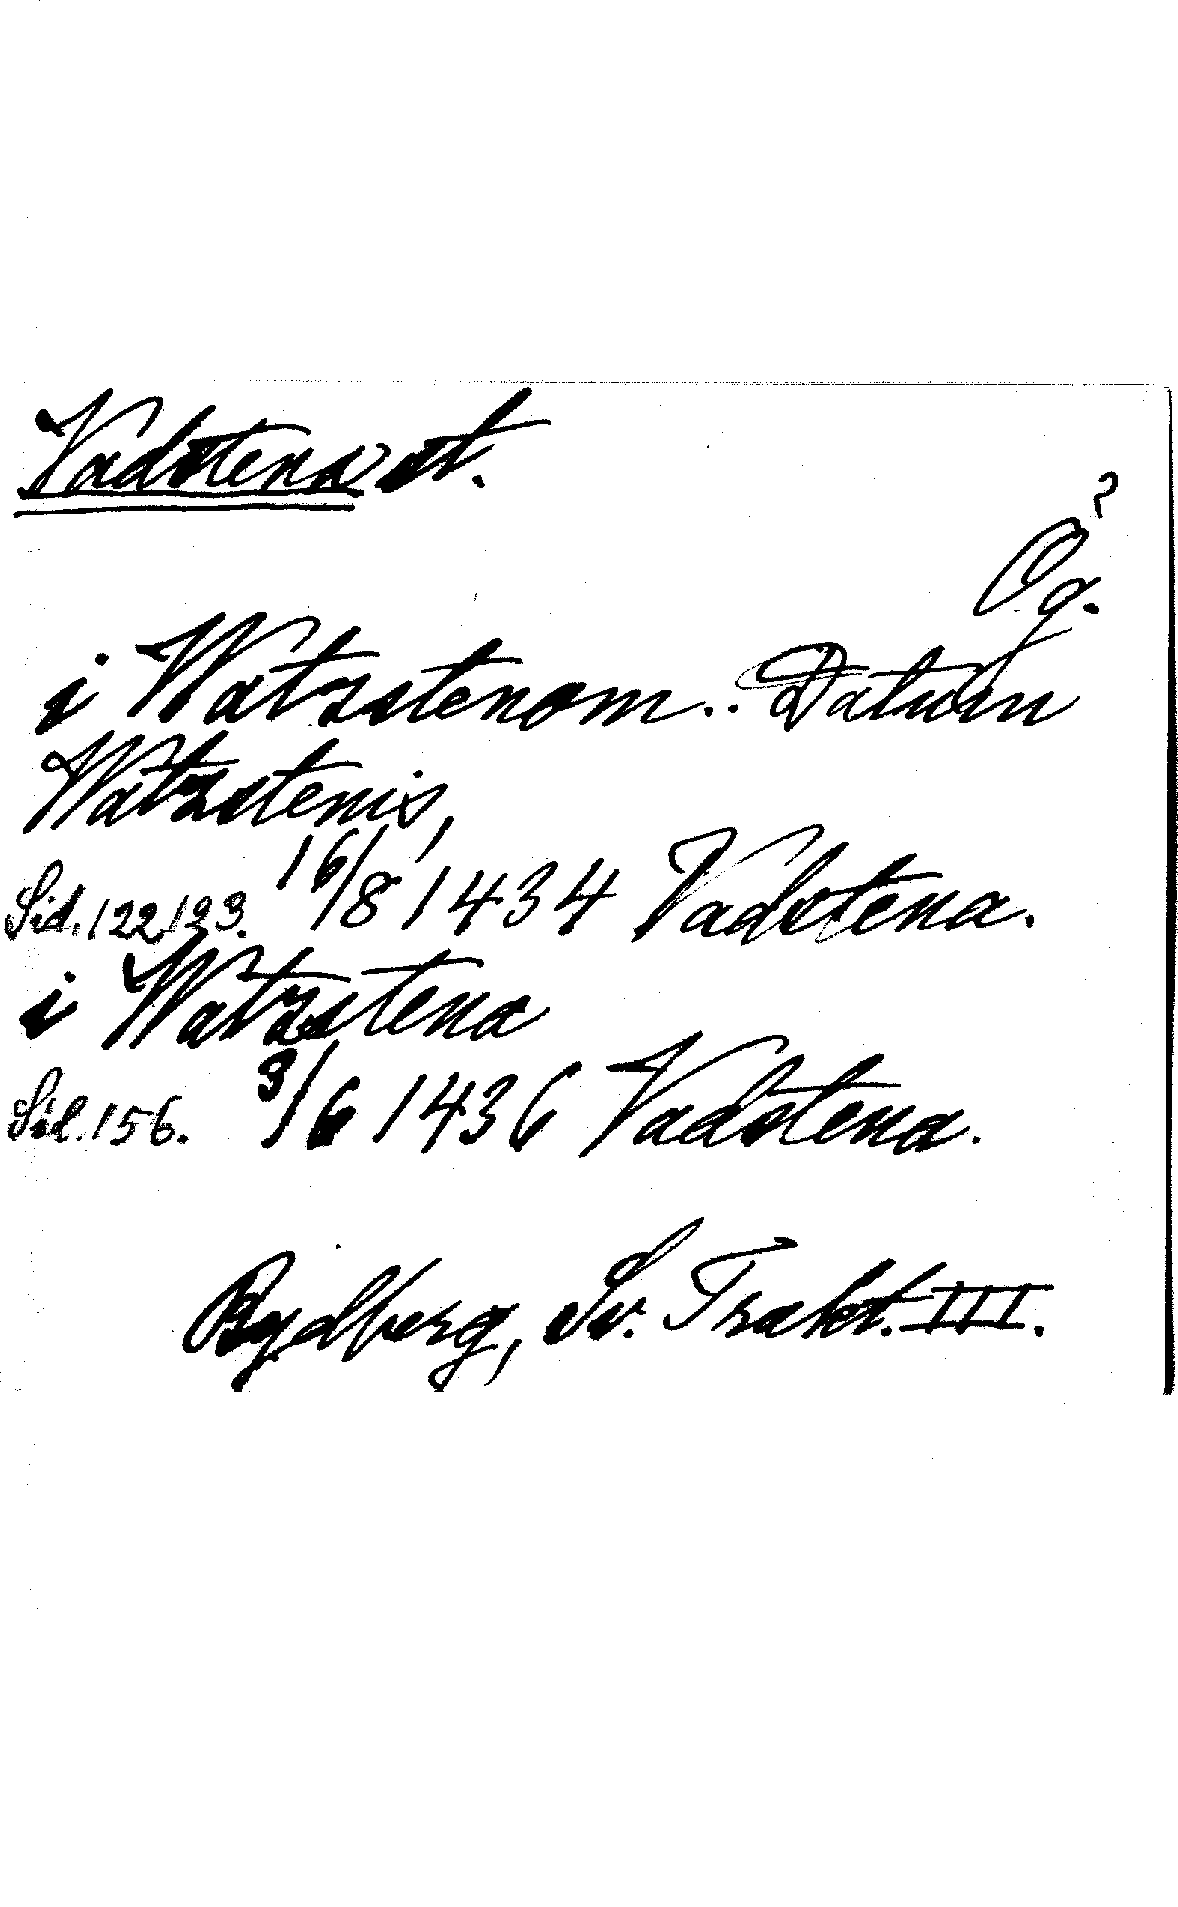 Vadstena st.
Ög.
i Watzstenom.. Datum
Watzstenis,
Sid. 122, 123. 16/8 1434 Vadstena.
i Watzstena
Sid. 156. 3/6 1436 Vadstena.
Rydberg, Sv. Trakt. III.